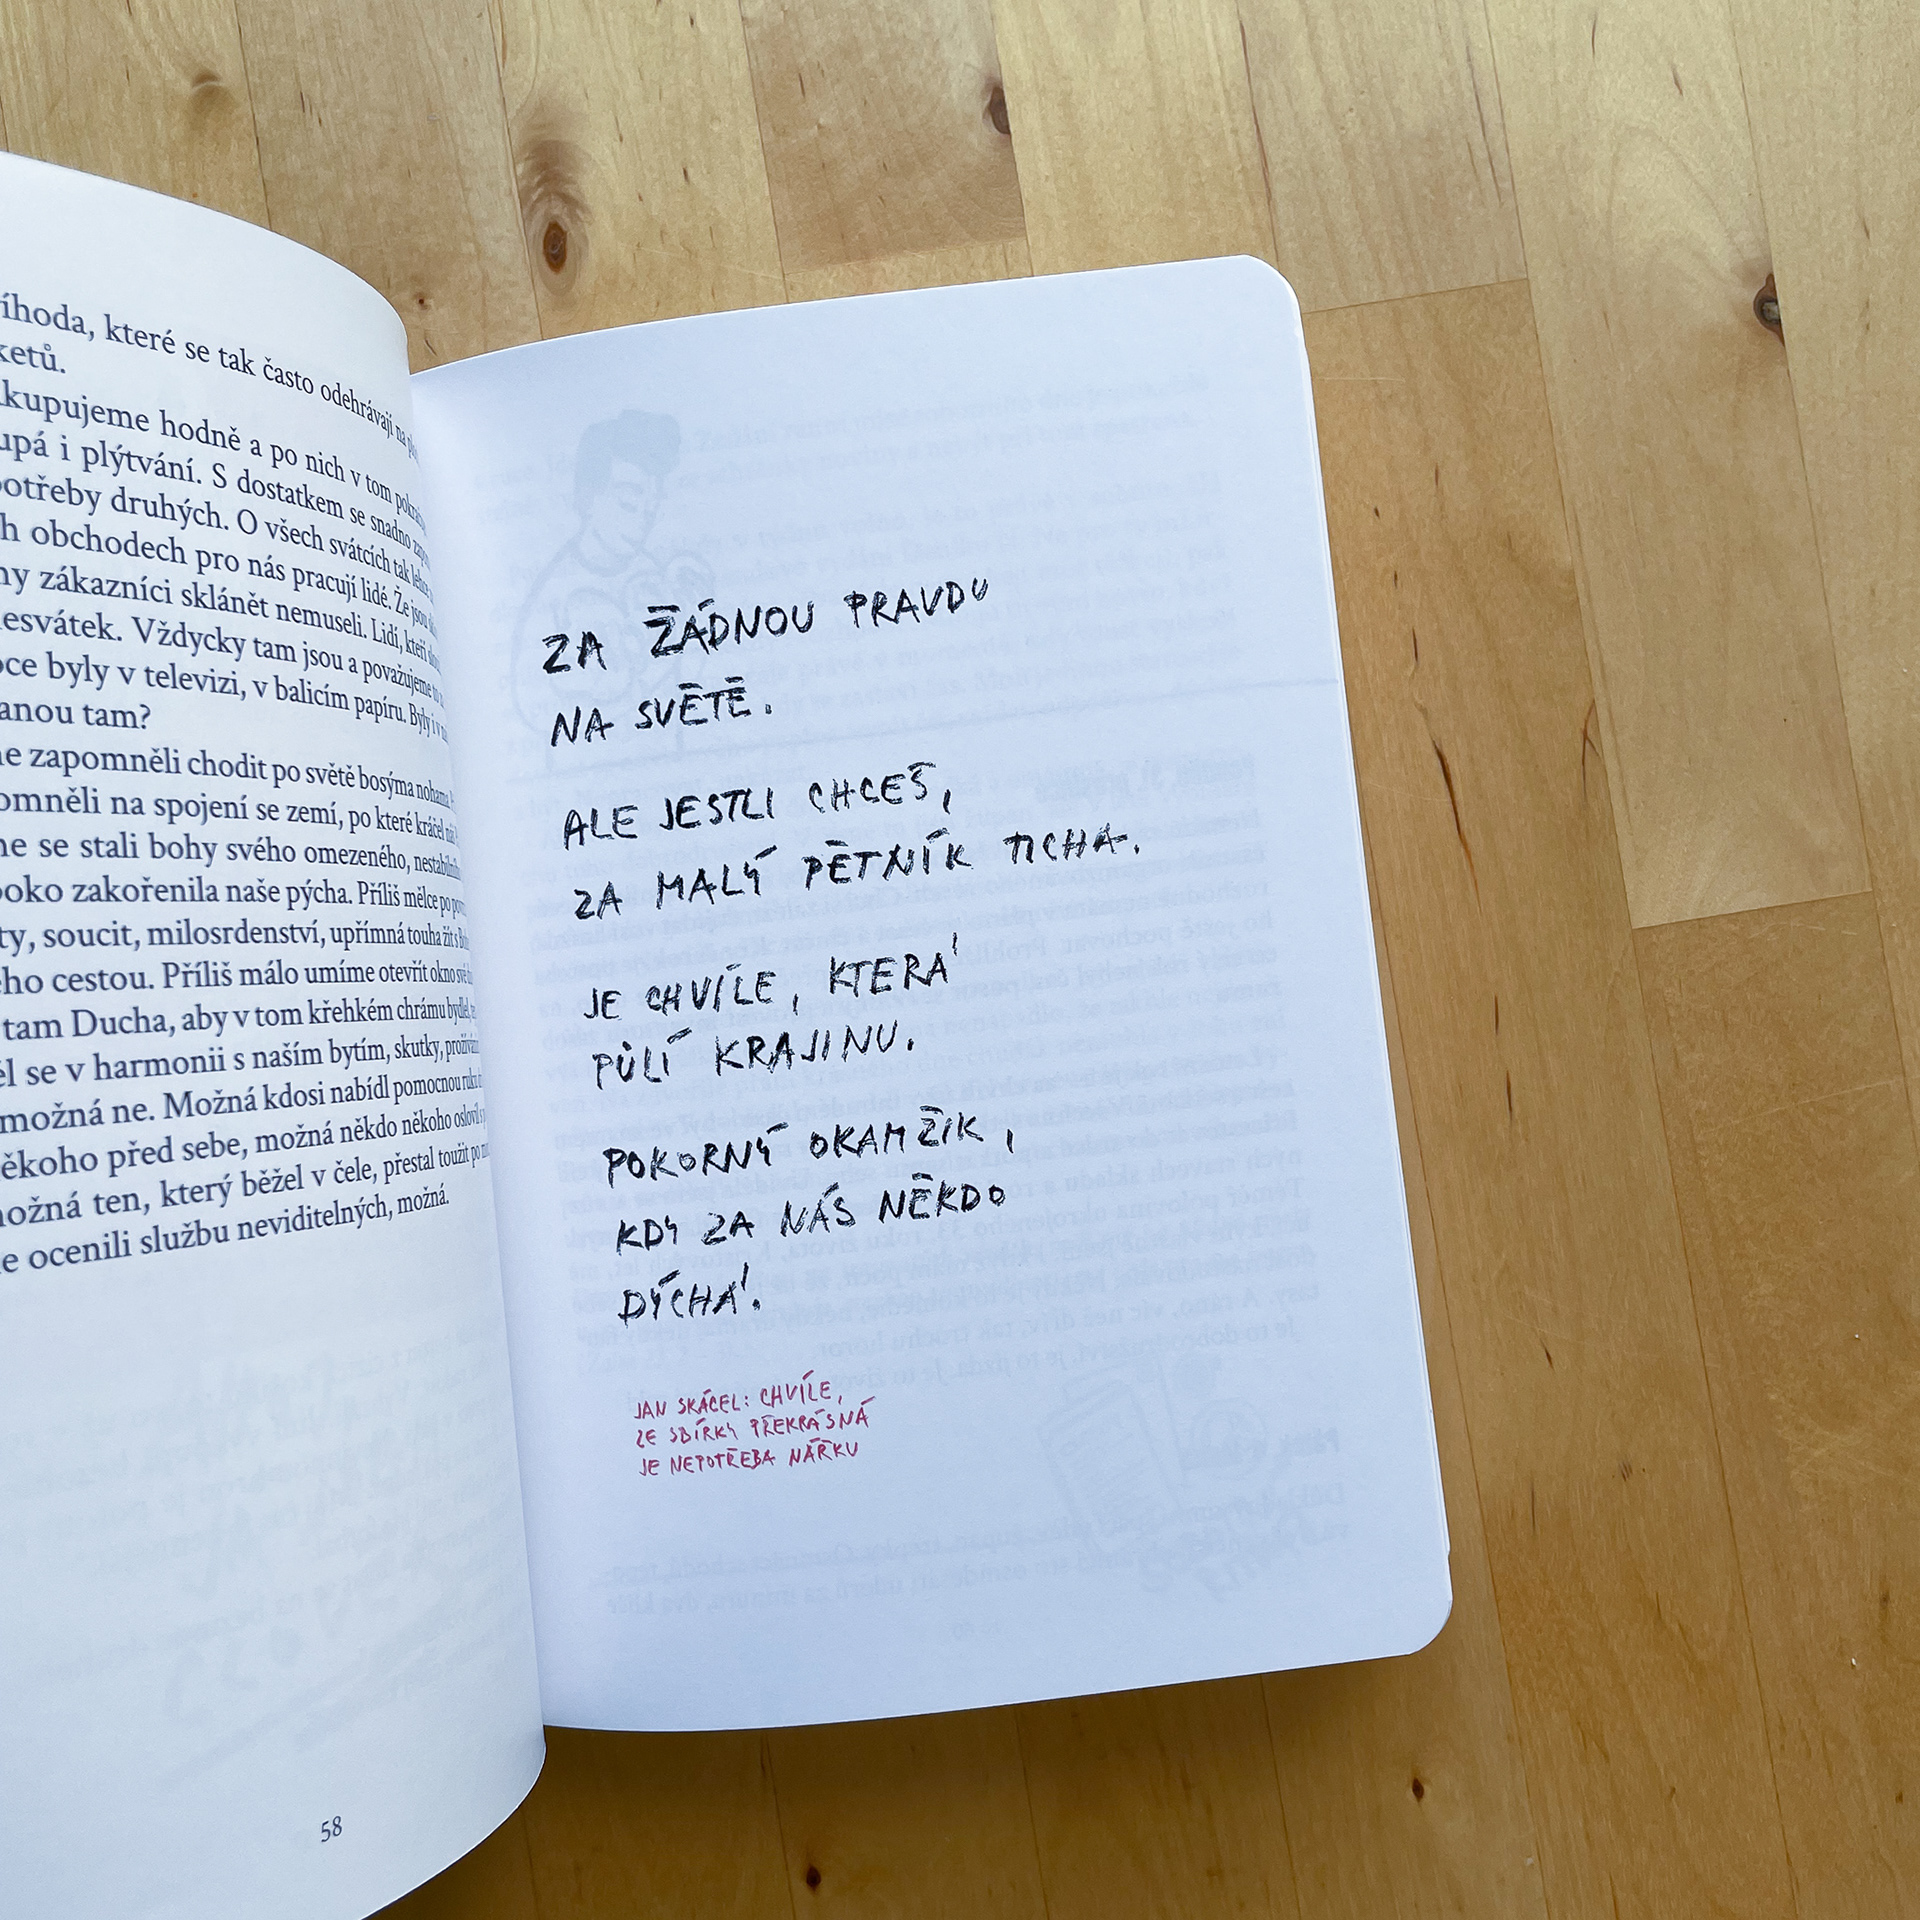 které se tak často odehrávají na
kupujeme hodně a po nich v tom
i plýtvání. S dostatkem se snadno
potřeby druhých. O všech svátcích tak lehce
obchodech pro nás pracují lidé. Že jsou
zákazníci sklánět nemuseli. Lidí, kteří
nesvátek. Vždycky tam jsou a považujeme
byly v televizi, v balicím papíru. Byly i v
tam?
zapomněli chodit po světě bosýma nohama.
na spojení se zemí, po které kráčel
se stali bohy svého omezeného,
zakořenila naše pýcha. Příliš mělce
soucit, milosrdenství, upřímná touha žít s
cestou. Příliš málo umíme otevřít okno
tam Ducha, aby v tom křehkém chrámu bydlel,
se v harmonii s naším bytím, skutky,
možná ne. Možná kdosi nabídl pomocnou
někoho před sebe, možná někdo někoho oslovil
možná ten, který běžel v čele, přestal toužit po
ocenili službu neviditelných, možná.
58
ZA ŽÁDNOU PRAVDU
NA SVĚTĚ.
ALE JESTLI CHCEŠ,
ZA MALÝ PĚTNÍK TICHA.
JE CHVÍLE, KTERÁ
PŮLÍ KRAJINU.
POKORNÝ OKAMŽIK,
KDY ZA NÁS NĚKDO
DÝCHÁ.
JAN SKÁCEL: CHVÍLE,
ZE SBÍRKY PŘEKRÁSNÁ
JE NEPOTŘEBA NÁŘKU